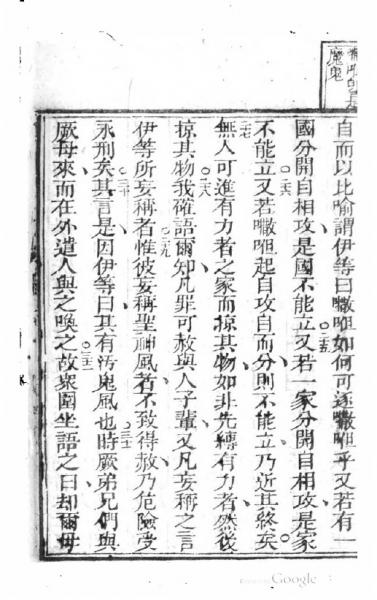 魔鬼
自而以比喻謂伊等曰呾如何可逐呾乎又若有一
國分開自相攻是國不能立又若一家分開自相攻是家
不能立又若呾起自攻自而分則不能立乃近其終矣
無人可進有力者之家而掠其物如非先縛有力者然後
掠其物我確語爾知凡罪可赦與人子輩又凡妄稱之言
伊等所妄稱者惟彼妄稱聖神風者不致得赦乃危險受
永刑矣其言是因伊等曰其有污鬼風也時厥弟兄們與
厥母來而在外遣人與之喚之故衆圍坐語之曰却爾母
Google